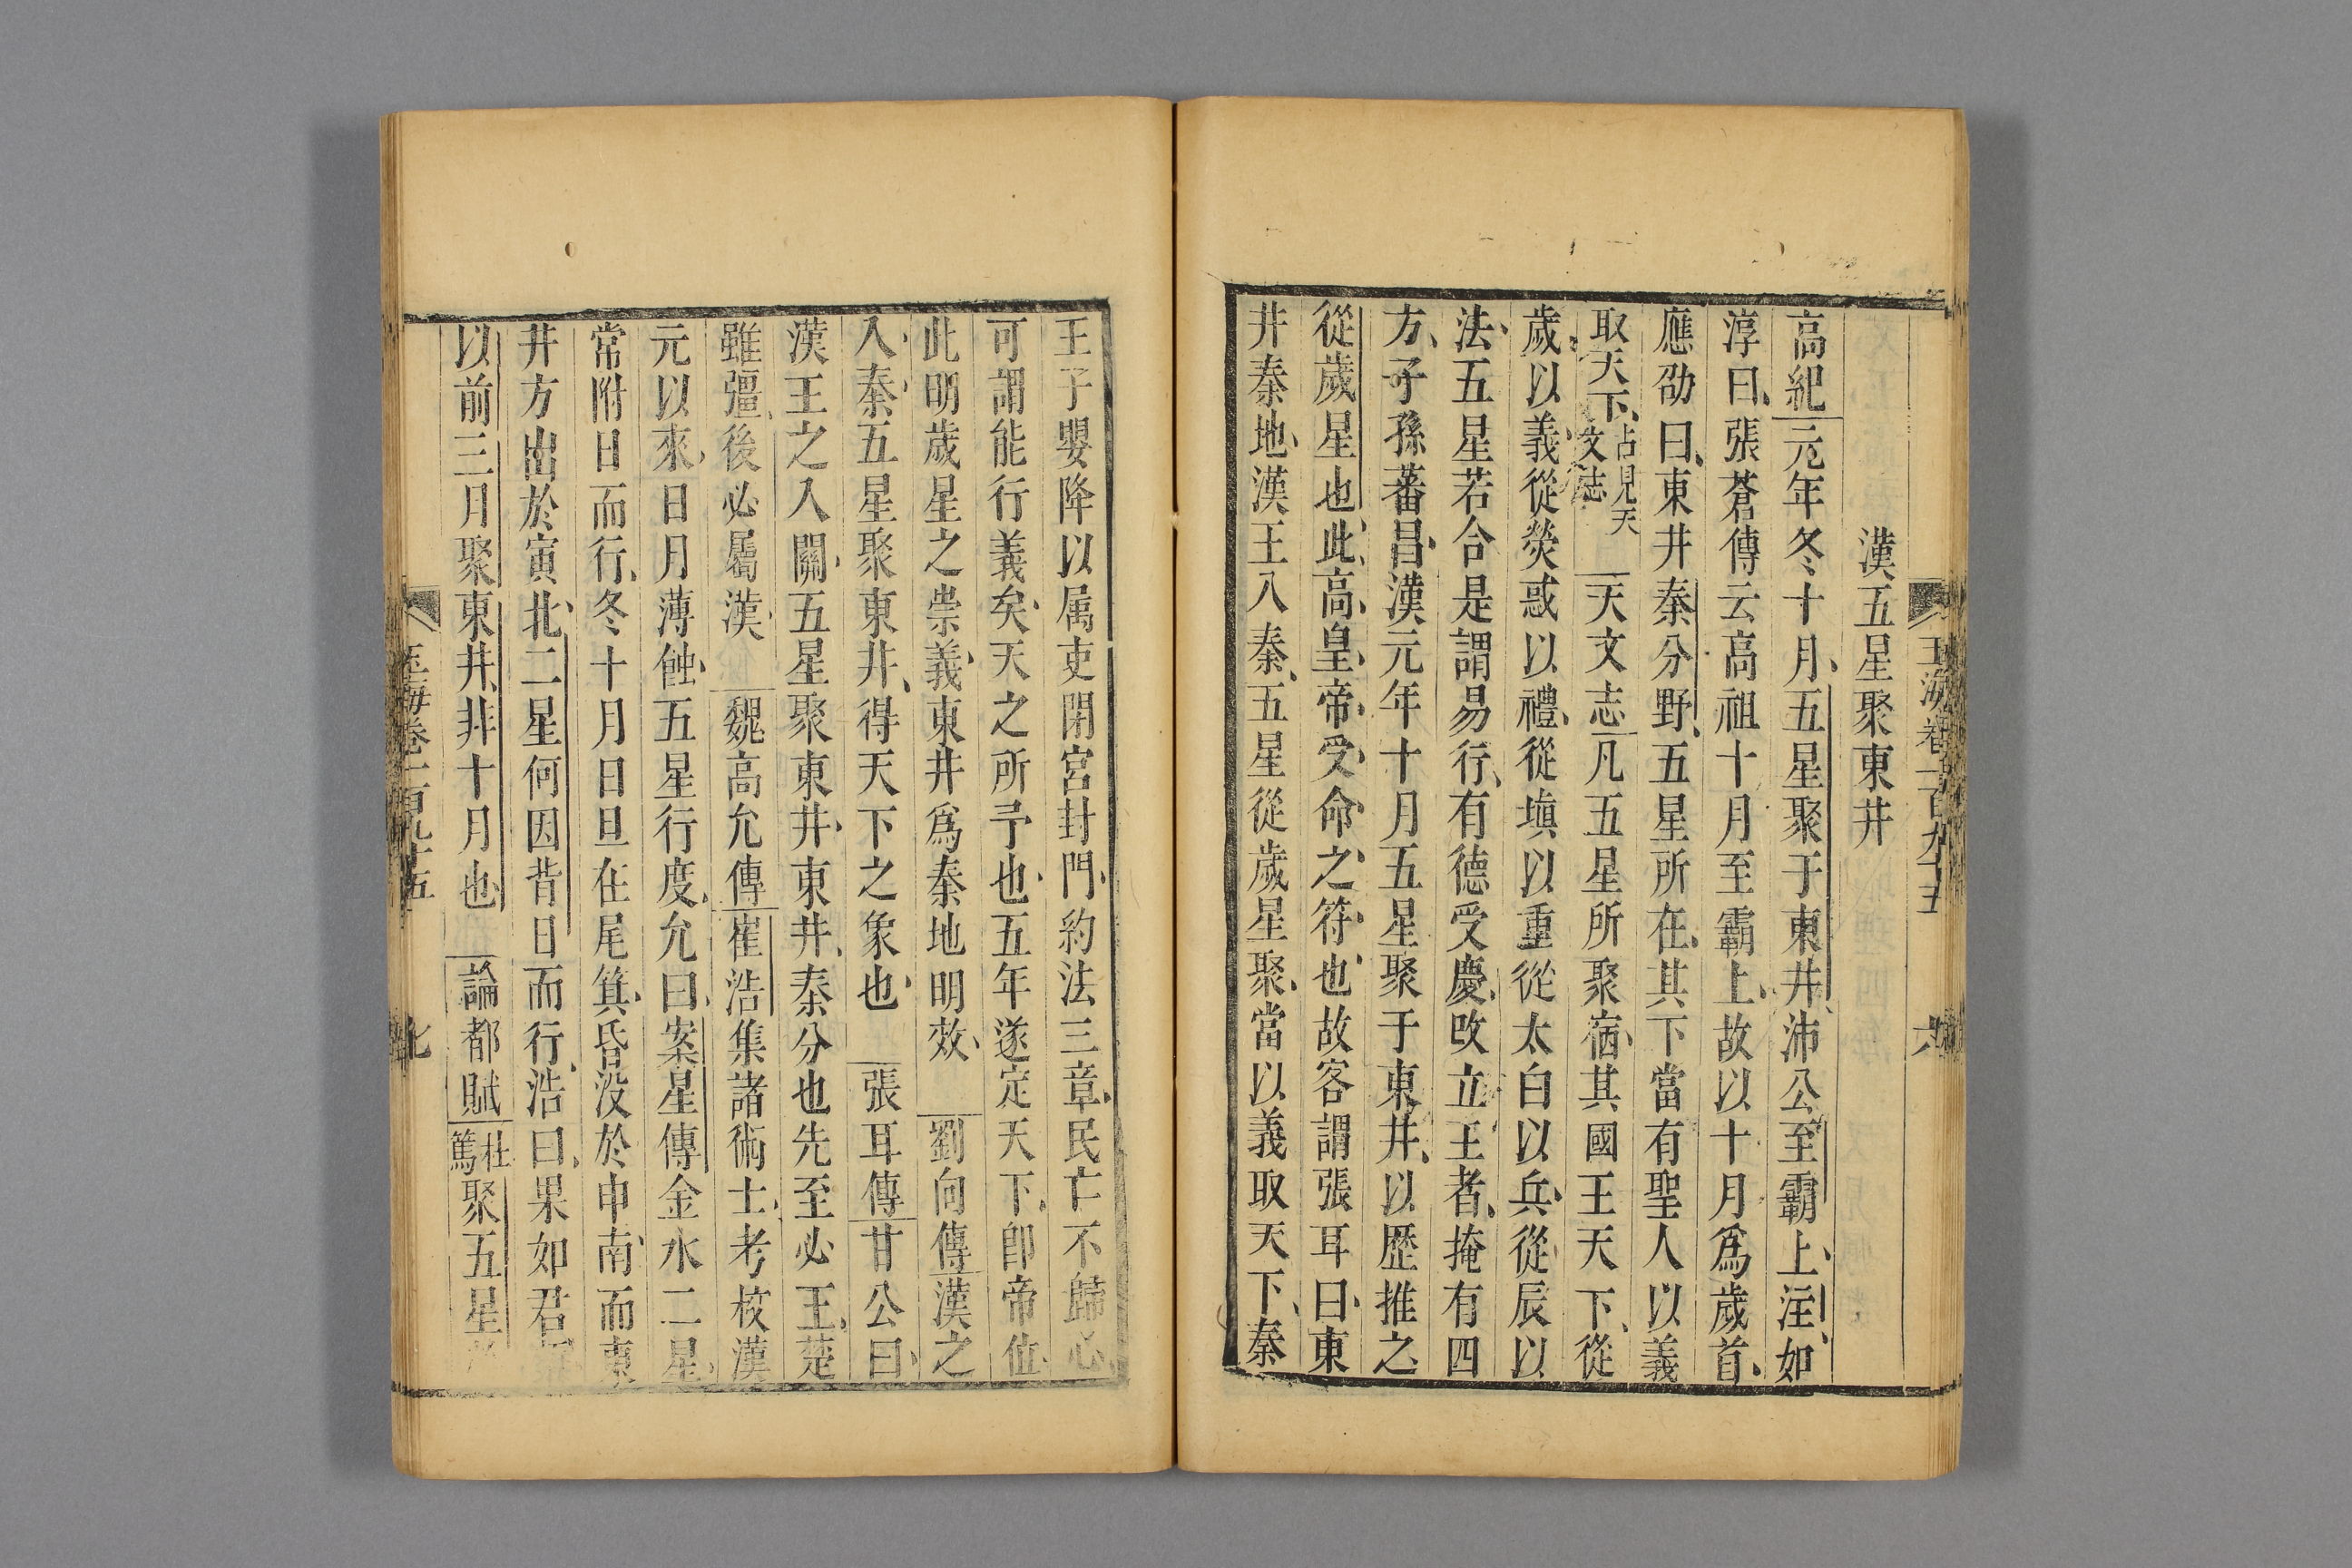 玉海卷一百九十五
六
漢五星聚東井
高紀元年冬十月五星聚于東井沛公至霸上注如
淳曰張蒼傳云高祖十月至霸上故以十月爲歲首
應劭曰東井秦分野五星所在其下當有聖人以義
取天下占見天文志天文志凡五星所聚宿其國王天下從
歲以義從熒惑以禮從塡以重從太白以兵從辰以
法五星若合是謂易行有德受慶改立王者掩有四
方子孫蕃昌漢元年十月五星聚于東井以歷推之
從歲星也此高皇帝受命之符也故客謂張耳曰東
井秦地漢王入秦五星從歲星聚當以義取天下秦
王子嬰降以属吏閉宮封門約法三章民亡不歸心
可謂能行義矣天之所予也五年遂定天下卽帝位
此明歲星之崇義東井爲秦地明效劉向傳漢之
入秦五星聚東井得天下之象也張耳傳甘公曰
漢王之入關五星聚東井東井秦分也先至必王楚
雖彊後必屬漢魏高允傳崔浩集諸術士考校漢
元以來日月薄蝕五星行度允曰案星傳金水二星
常附日而行冬十月日旦在尾箕昏没於申南而東
井方出於寅北二星何因背日而行浩曰果如君
以前三月聚東井非十月也論都賦杜篤聚五星
玉海卷一百九十五
七